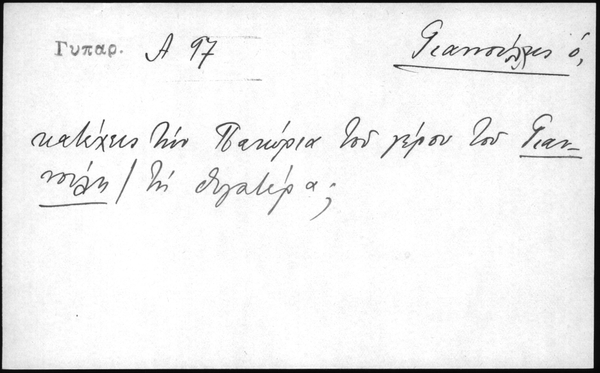 Γυπαρ. Α 97 Γιαννούλης ὁ,
κατέχεις τὴν Πανώρια τοῦ γέρου τοῦ Γιαν-
νούλη / τὴ θυγατέρα;